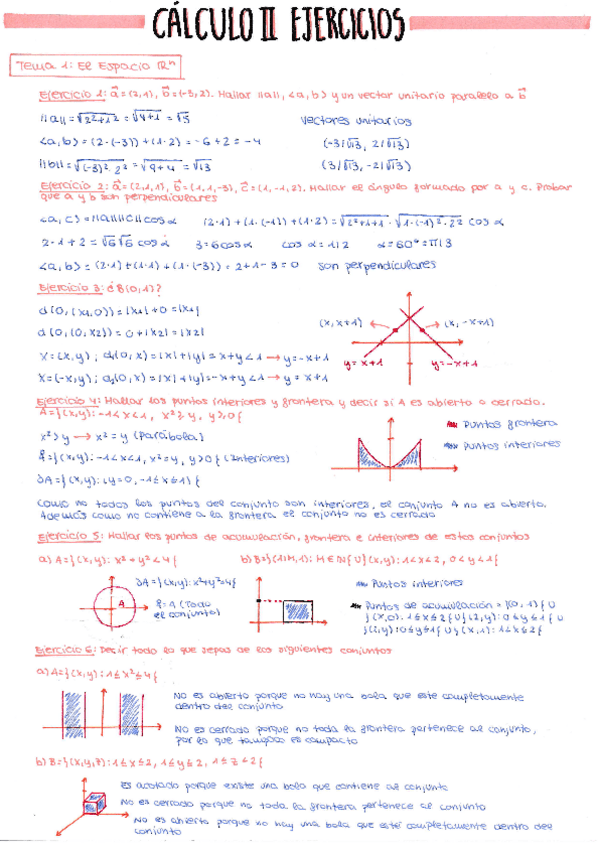 CÁLCULO II EJERCICIOS
Tema 1: El Espacio ℝⁿ
Ejercicio 1: a⃗=(2,1), b⃗=(-3,2). Hallar ||a||, <a,b> y un vector unitario paralelo a b⃗
||a|| = √2²+1² = √4+1 = √5 vectores unitarios
<a,b> = (2·(-3)) + (1·2) = -6+2 = -4 (-3/√13, 2/√13)
||b|| = √(-3)² 2² = √9+4 = √13 (3/√13, -2/√13)
Ejercicio 2: a⃗=(2,1,1), b⃗=(1,1,-3), c⃗=(1,-1,2). Hallar el ángulo formado por a y c. Probar
que a y b son perpendiculares
<a,c> = ||a||||c|| cos α (2·1)+(1·(-1))+(1·2) = √2²+1+1 · √1·(-1)²·2² cos α
2-1+2 = √6√6 cos α 3=6cos α cos α = 1/2 α=60º=π/3
<a,b> = (2·1)+(1·1)+(1·(-3)) = 2+1-3=0 son perpendiculares
Ejercicio 3: d B(0,1)?
d(0,(x1,0)) = |x1|+0 = |x1|
d(0,(0,x2)) = 0+|x2| = |x2|
(x,x+1) (x,-x+1)
X=(x,y); d1(0,x) = |x|+|y| = x+y<1 → y=-x+1
y=x+1 y=-x+1
X=(-x,y); d1(0,x) = |x|+|y| = -x+y<1 → y=x+1
Ejercicio 4: Hallar los puntos interiores y frontera y decir si A es abierto o cerrado.
A={(x,y): -1<x<1, x²≥y, y≥0}
Puntos frontera
x²≥y → x²=y (Parábola)
Puntos interiores
Å={(x,y): -1<x<1, x²=y, y>0} (Interiores)
∂A={(x,y): (y=0, -1≤x≤1)}
Como no todos los puntos del conjunto son interiores, el conjunto A no es abierto.
Además como no contiene a la frontera el conjunto no es cerrado
Ejercicio 5: Hallar los puntos de acumulación, frontera e interiores de estos conjuntos
a) A={(x,y): x²+y²<4} b) B={(1/M,1): M∈N}∪{(x,y): 1<x<2, 0<y<1}
∂A={(x,y): x²+y²=4}
Puntos interiores
A
Å=A (Todo
el conjunto)
Puntos de acumulación = {(0,1)}∪
{(x,0): 1≤x≤2}∪{(2,y): 0≤y≤1}∪
{(1,y): 0≤y≤1}∪{(x,1): 1≤x≤2}
Ejercicio 6: Decir todo lo que sepas de los siguientes conjuntos
a) A={(x,y): 1≤x²≤4}
No es abierto porque no hay una bola que esté completamente
dentro del conjunto
No es cerrado porque no toda la frontera pertenece al conjunto,
por lo que tampoco es compacto
b) B={(x,y,z): 1≤x≤2, 1≤y≤2, 1≤z<2}
Es acotado porque existe una bola que contiene al conjunto
No es cerrado porque no toda la frontera pertenece al conjunto
No es abierto porque no hay una bola que esté completamente dentro del
conjunto